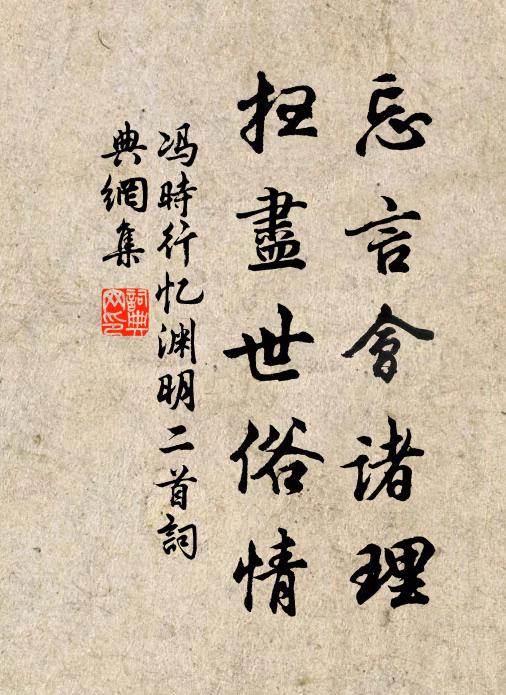 忘言會诸理
扫盡世俗情
冯時行忆渊明二首詞
典網集
詞典
网印